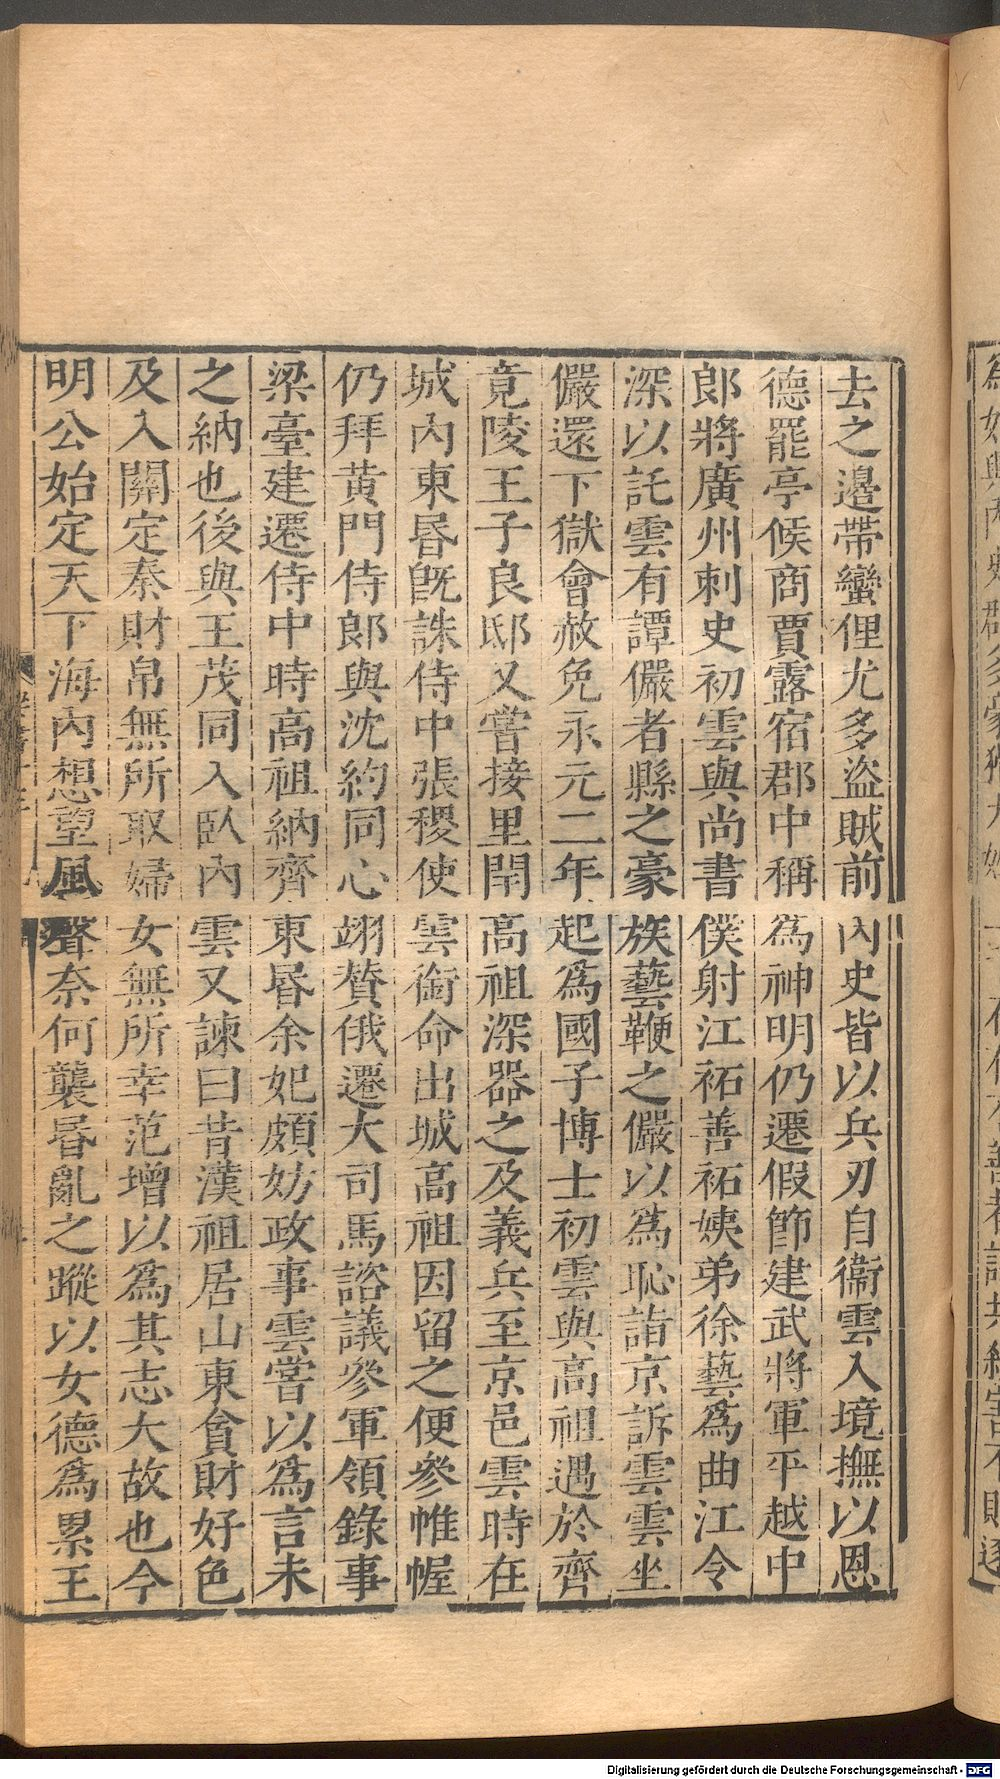 去之邊帶蠻俚尤多盜賊前內史皆以兵刃自衞雲入境撫以恩
德罷亭候商賈露宿郡中稱爲神明仍遷假節建武將軍平越中
郎將廣州刺史初雲與尚書僕射江祏善祏姨弟徐藝爲曲江令
深以託雲有譚儼者縣之豪族藝鞭之儼以爲恥詣京訴雲雲坐
儼還下獄會赦免永元二年起爲國子博士初雲與高祖遇於齊
竟陵王子良邸又嘗接里閈高祖深器之及義兵至京邑雲時在
城內東昬旣誅侍中張稷使雲銜命出城高祖因留之便參帷幄
仍拜黃門侍郎與沈約同心翊贊俄遷大司馬諮議參軍領錄事
梁臺建遷侍中時高祖納齊東昬余妃頗妨政事雲嘗以爲言未
之納也後與王茂同入臥內雲又諫曰昔漢祖居山東貪財好色
及入關定秦財帛無所取婦女無所幸范增以爲其志大故也今
明公始定天下海內想望風聲奈何襲昬亂之蹤以女德爲累王
Digitalisierung gefördert durch die Deutsche Forschungsgemeinschaft - DFG